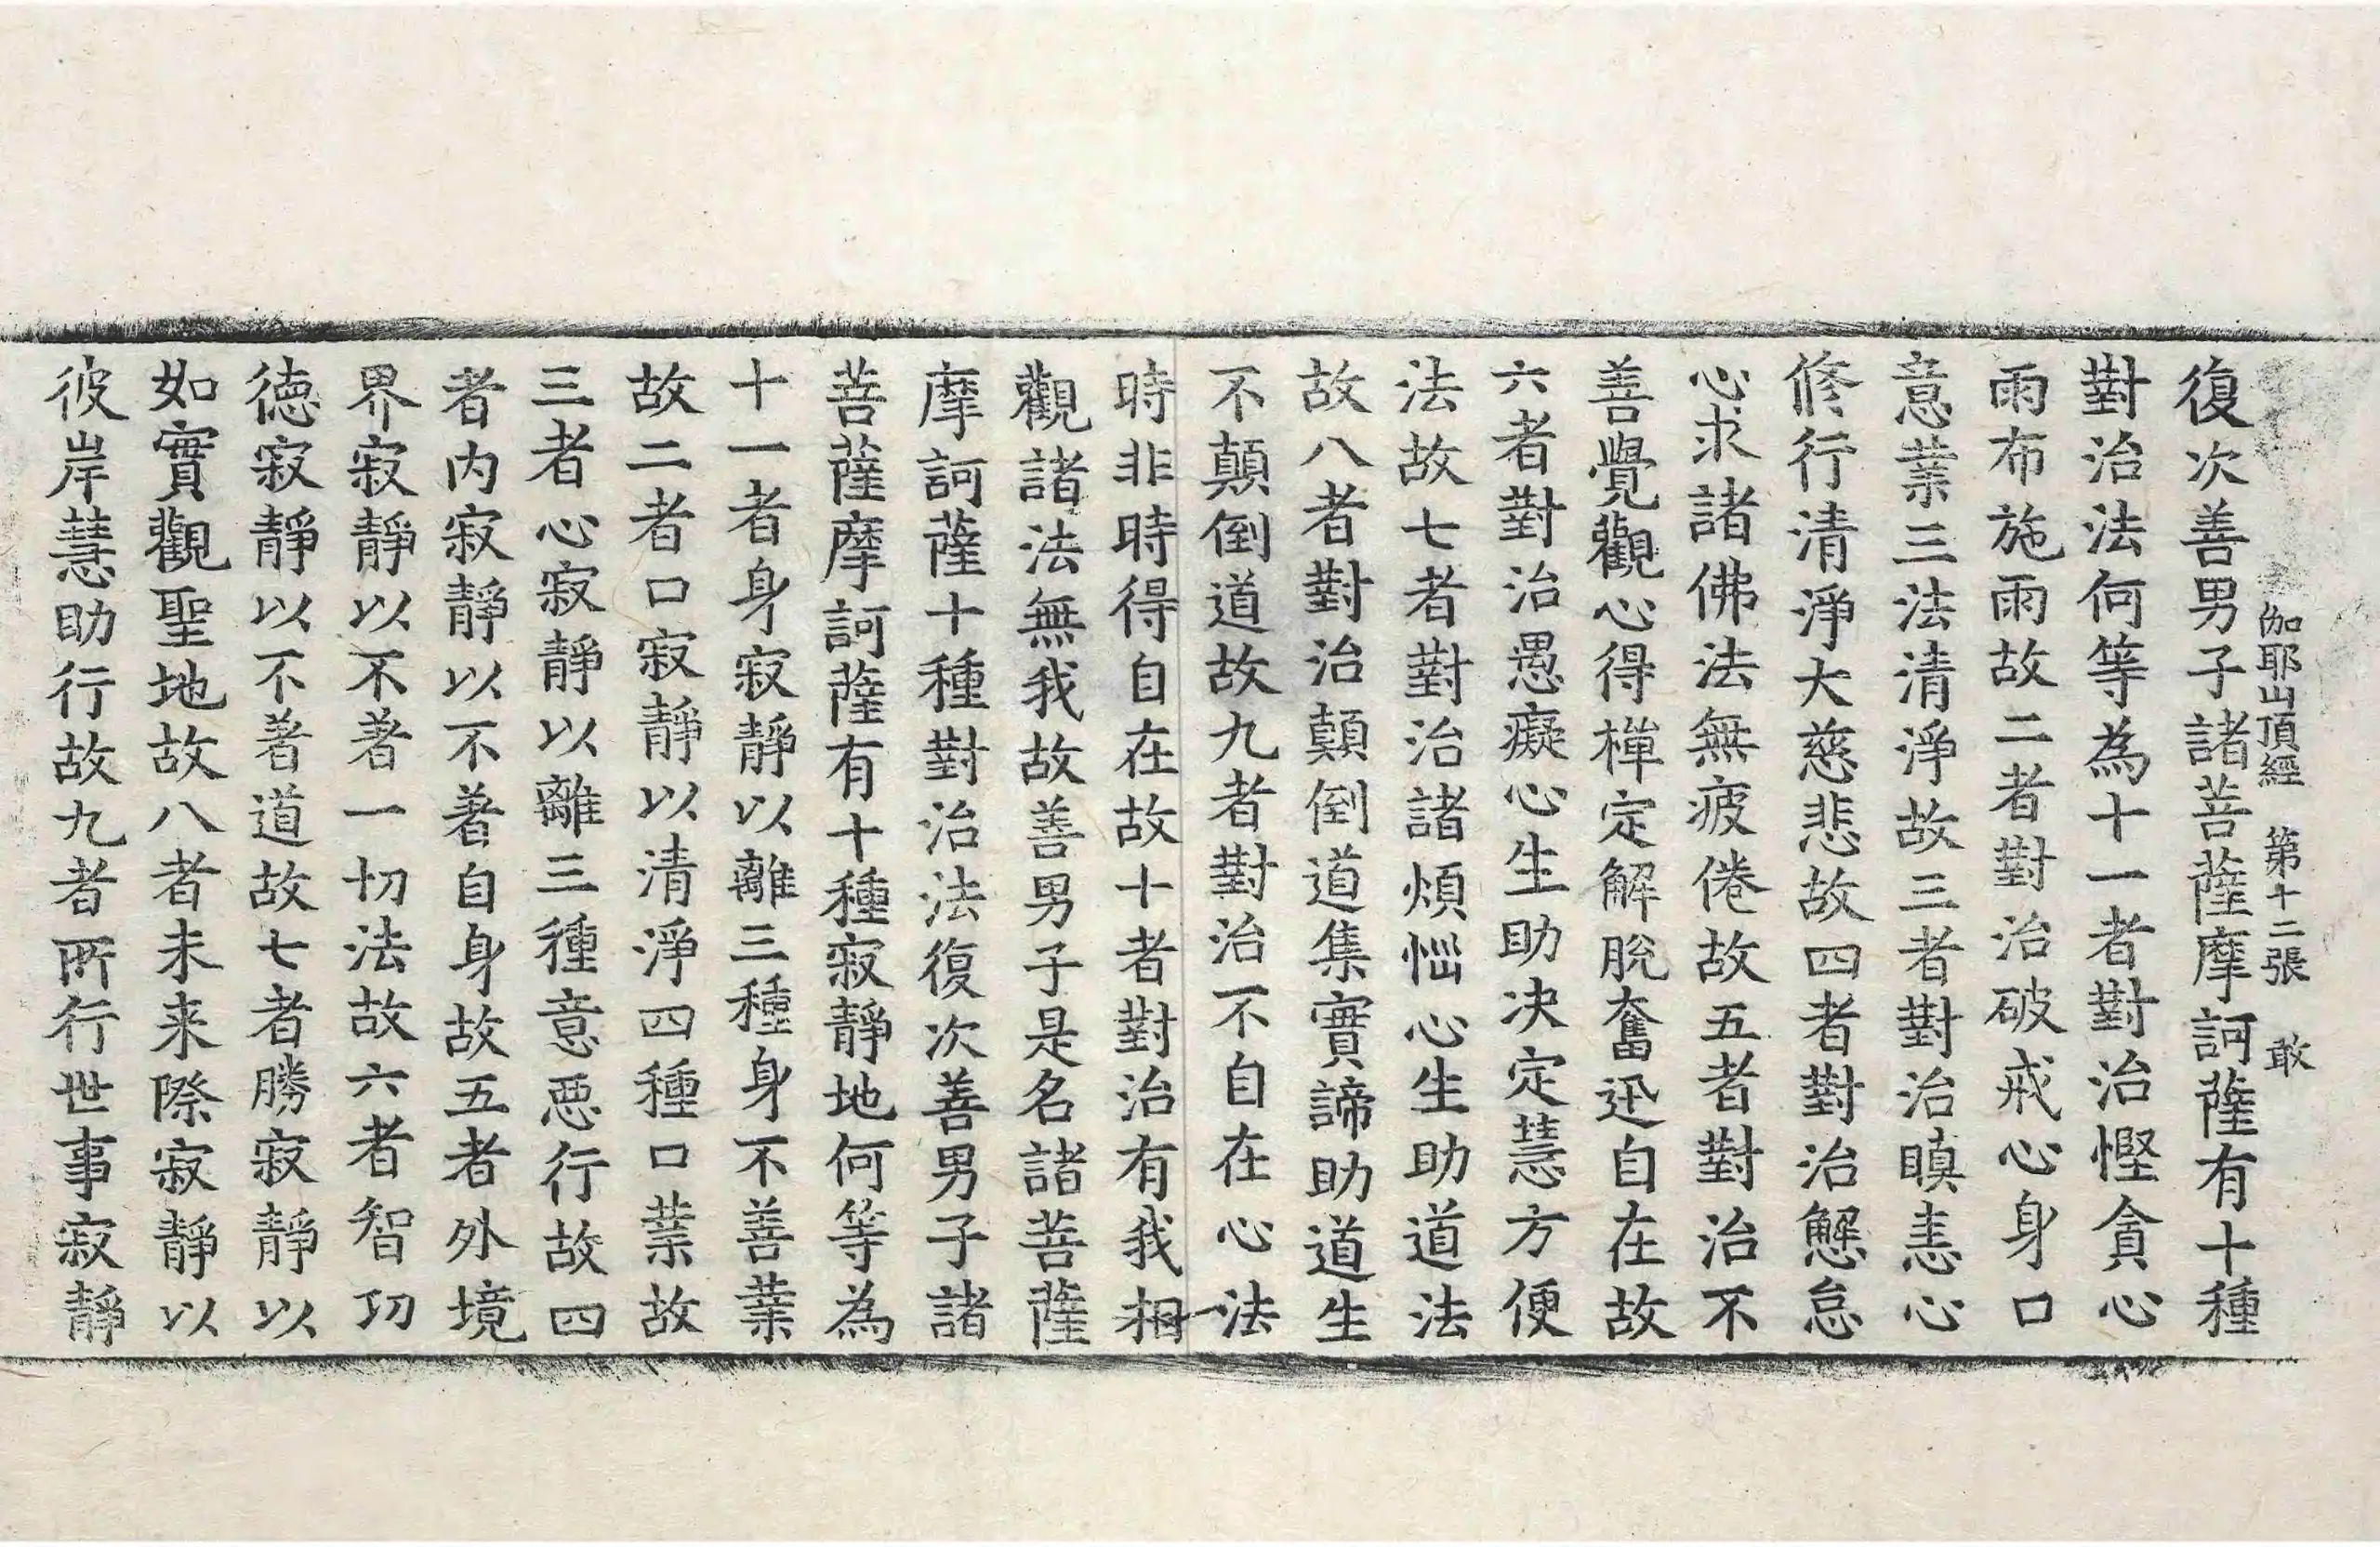 伽耶山頂經 第十二張 敢
復次善男子諸菩薩摩訶薩有十種
對治法何等為十一者對治慳貪心
雨布施雨故二者對治破戒心身口
意業三法清淨故三者對治瞋恚心
修行清淨大慈悲故四者對治懈怠
心求諸佛法無疲倦故五者對治不
善覺觀心得禪定解脫奮迅自在故
六者對治愚癡心生助决定慧方便
法故七者對治諸煩惱心生助道法
故八者對治顛倒道集實諦助道生
不顛倒道故九者對治不自在心法
時非時得自在故十者對治有我相
觀諸法無我故善男子是名諸菩薩
摩訶薩十種對治法復次善男子諸
菩薩摩訶薩有十種寂靜地何等為
十一者身寂靜以離三種身不善業
故二者口寂靜以清淨四種口業故
三者心寂靜以離三種意惡行故四
者内寂靜以不著自身故五者外境
界寂靜以不著一切法故六者智功
德寂靜以不著道故七者勝寂靜以
如實觀聖地故八者未来際寂靜以
彼岸慧助行故九者所行世事寂靜